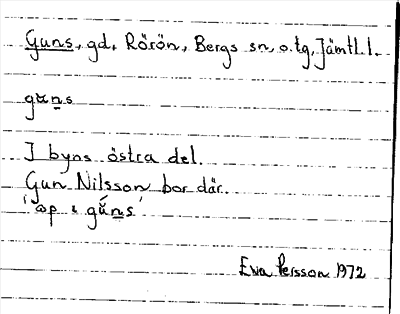 Guns, gd, Rörön, Bergs sn, o. tg, Jämtl. l.
I byns östra del.
Gun Nilsson bor där.
Eva Persson 1972